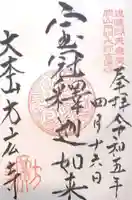 奉拝 令和五年
四月十六日
宝冠釋迦如来
大本山方広寺